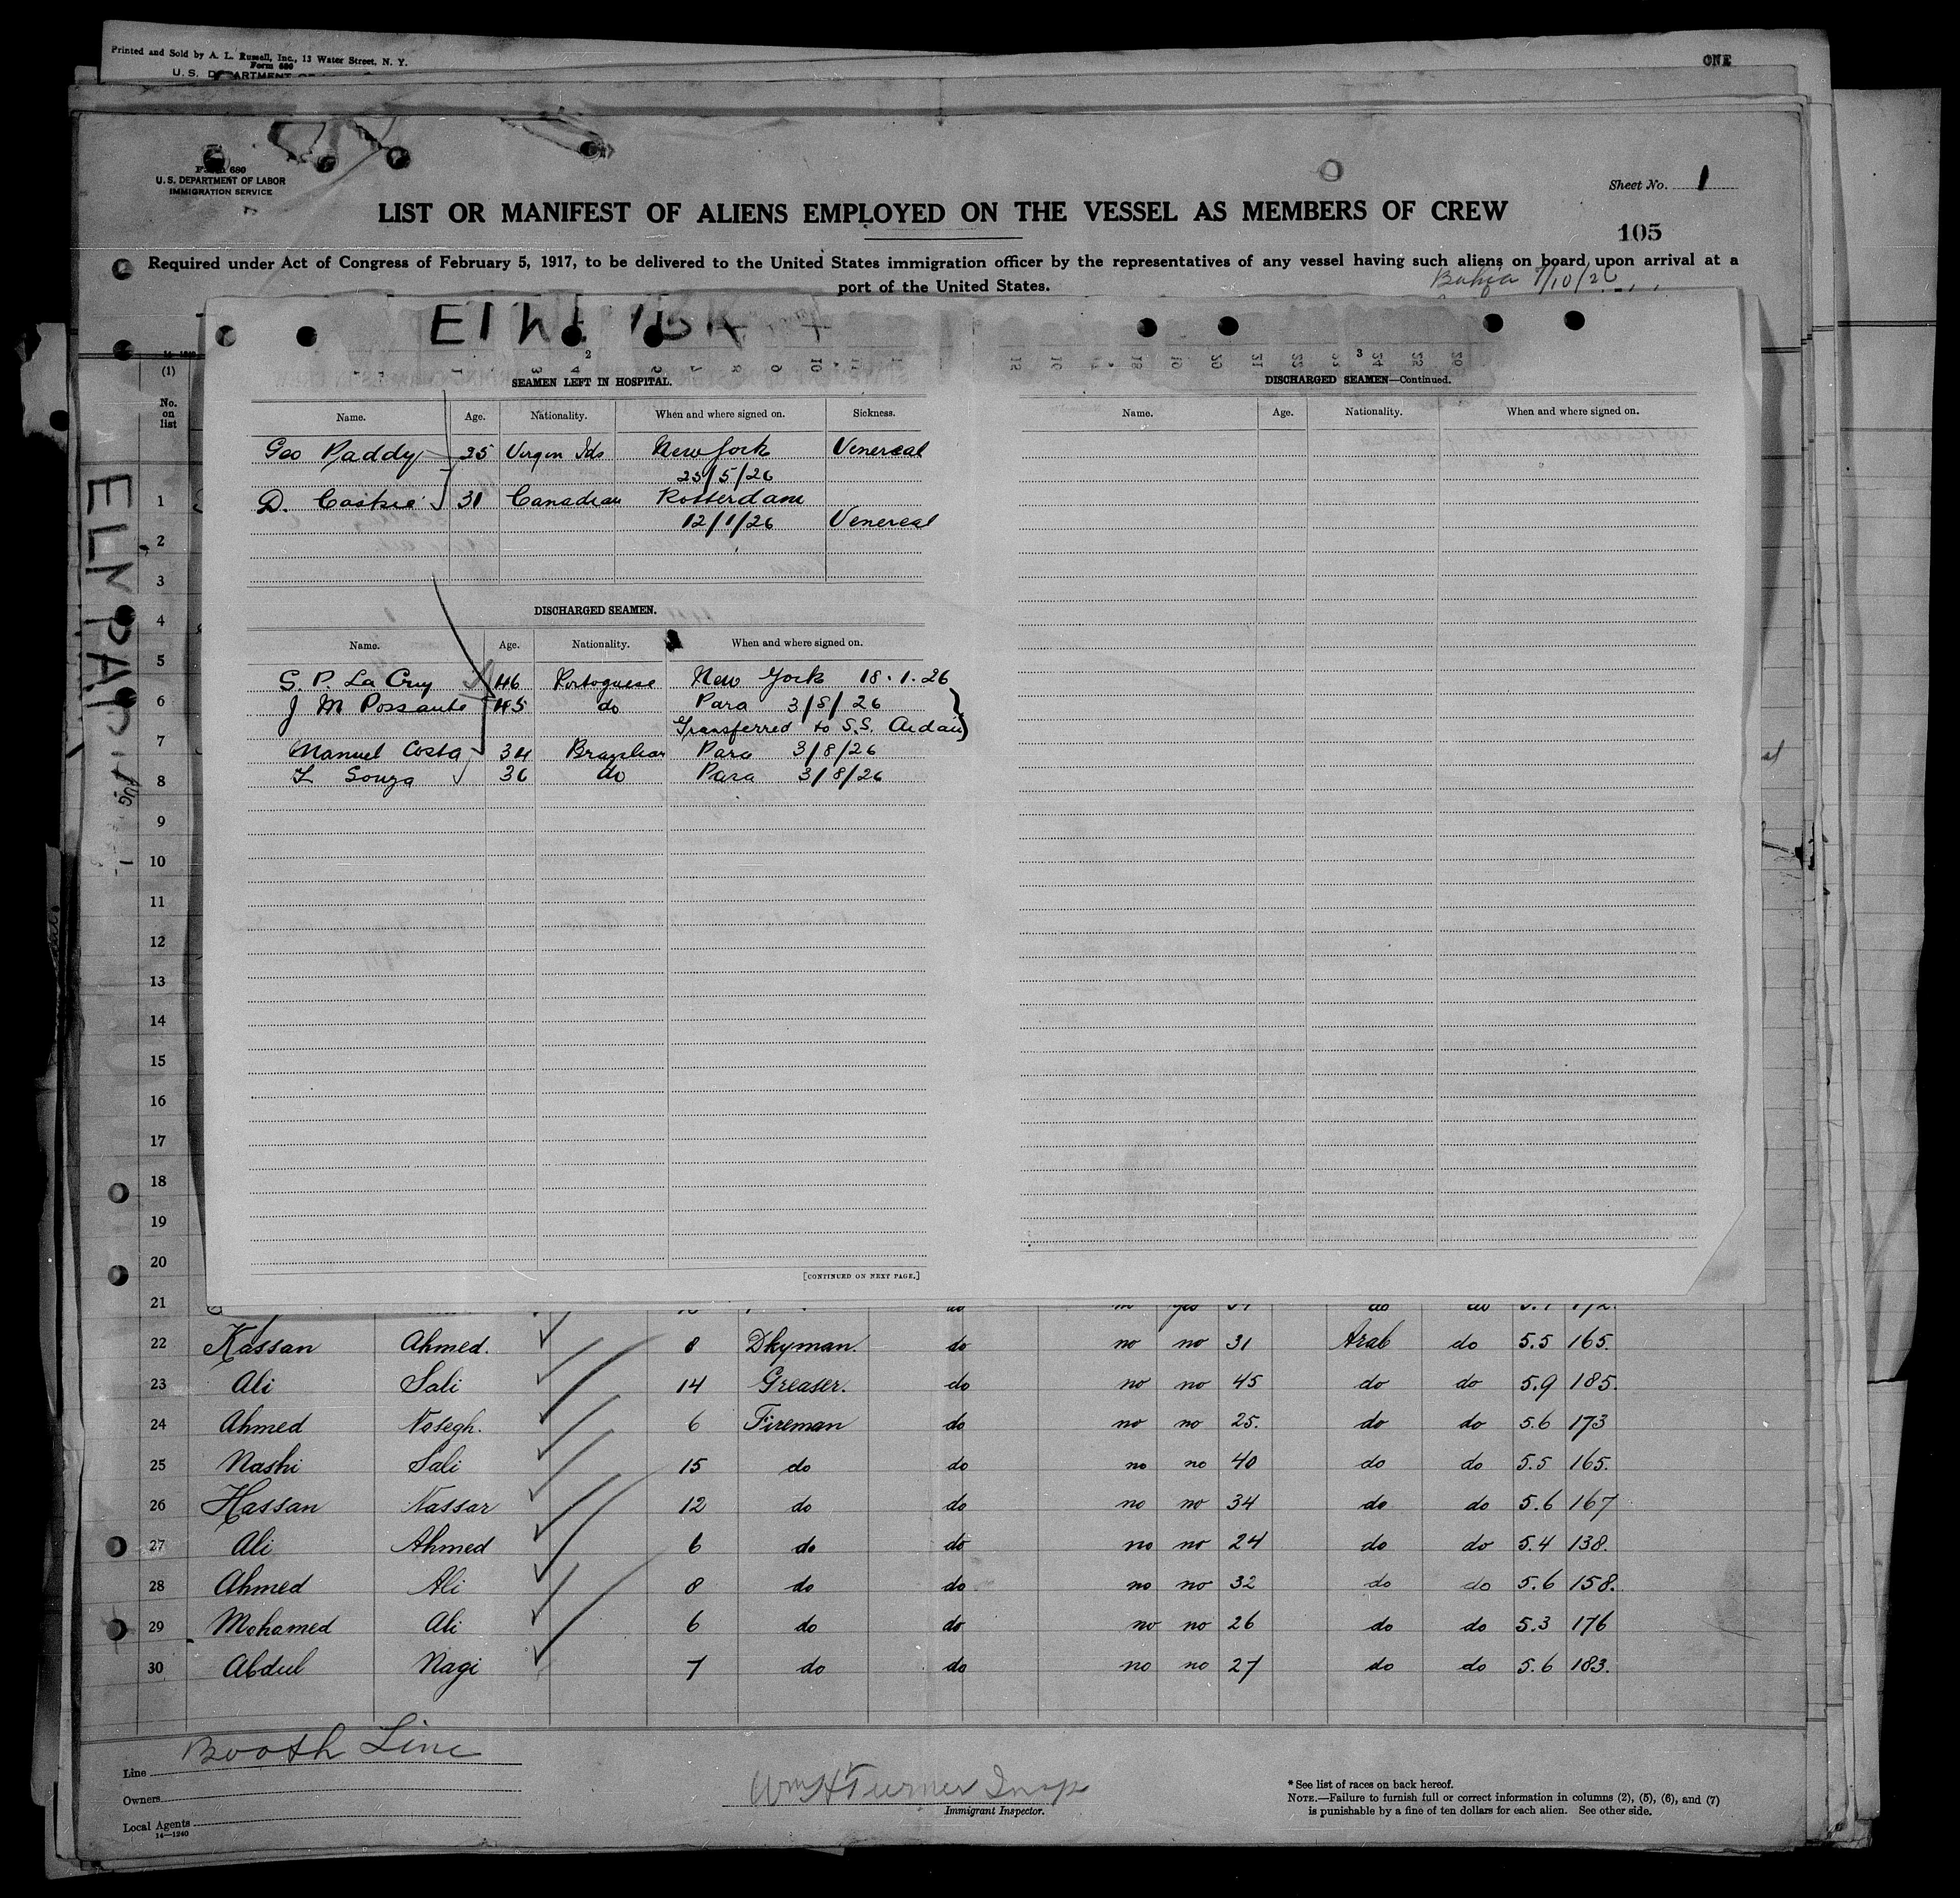 Printed and Sold by A. L. Russell, Inc., 13 Water Street, N. Y.
Form 680
U. S. DEPARTMENT OF
ONE
Form 680
U. S. DEPARTMENT OF LABOR
IMMIGRATION SERVICE
Sheet No. 1
LIST OR MANIFEST OF ALIENS EMPLOYED ON THE VESSEL AS MEMBERS OF CREW
105
Required under Act of Congress of February 5, 1917, to be delivered to the United States immigration officer by the representatives of any vessel having such aliens on board upon arrival at a
port of the United States.
Bahia 7/10/26
(1)
No. on list
2
SEAMEN LEFT IN HOSPITAL.
Name. Age. Nationality. When and where signed on. Sickness.
Geo Paddy 25 Virgin Ids New York Venereal
25/5/26
D. Caskie 31 Canadian Rotterdam
12/1/26 Venereal
DISCHARGED SEAMEN.
Name. Age. Nationality. When and where signed on.
S. P. La Cruy 46 Portoguese New York 18.1.26
J M Possante 45 do Para 3/8/26
Transferred to S.S. Aidan
Manuel Costa 34 Brazilian Para 3/8/26
L Souza 36 do Para 3/8/26
[CONTINUED ON NEXT PAGE.]
3
DISCHARGED SEAMEN—Continued.
Name. Age. Nationality. When and where signed on.
1
2
3
4
5
6
7
8
9
10
11
12
13
14
15
16
17
18
19
20
21
22 Kassan Ahmed. 8 Dkyman. do no no 31 Arab do 5.5 165.
23 Ali Sali 14 Greaser. do no no 45 do do 5.9 185.
24 Ahmed Nasegh. 6 Fireman do no no 25. do do 5.6 173
25 Nashi Sali 15 do do no no 40 do do 5.5 165.
26 Hassan Nassar 12 do do no no 34 do do 5.6 167
27 Ali Ahmed 6 do do no no 24 do do 5.4 138.
28 Ahmed Ali 8 do do no no 32 do do 5.6 158.
29 Mohamed Ali 6 do do no no 26 do do 5.3 176
30 Abdul Nagi 7 do do no no 27 do do 5.6 183.
Line Booth Line
Owners
Local Agents
14—1240
Wm H Turner Insp
Immigrant Inspector.
* See list of races on back hereof.
NOTE.—Failure to furnish full or correct information in columns (2), (5), (6), and (7)
is punishable by a fine of ten dollars for each alien. See other side.